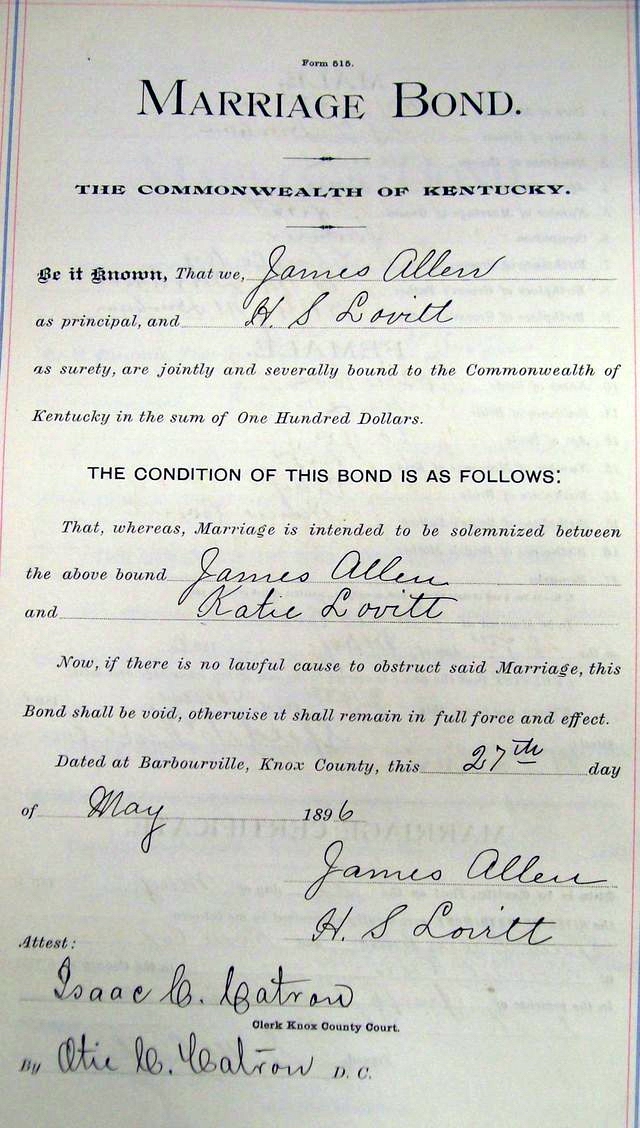 Form 515.
MARRIAGE BOND.
THE COMMONWEALTH OF KENTUCKY.
Be it Known, That we, James Allen
as principal, and H. S Lovitt
as surety, are jointly and severally bound to the Commonwealth of
Kentucky in the sum of One Hundred Dollars.
THE CONDITION OF THIS BOND IS AS FOLLOWS:
That, whereas, Marriage is intended to be solemnized between
the above bound James Allen
and Katie Lovitt
Now, if there is no lawful cause to obstruct said Marriage, this
Bond shall be void, otherwise it shall remain in full force and effect.
Dated at Barbourville, Knox County, this 27th day
of May 1896
James Allen
H. S Lovitt
Attest:
Isaac C. Catron
Clerk Knox County Court.
By Otie C. Catron D. C.